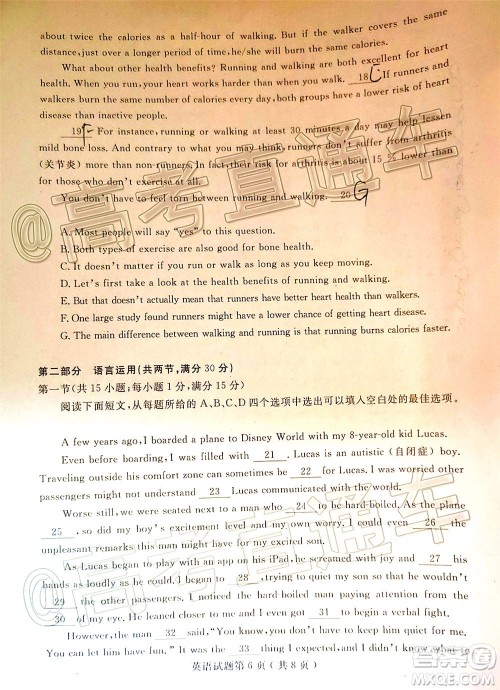 about twice the calories as a half-hour of walking. But if the walker covers the same
distance, just over a longer period of time, he/she will burn the same calories.
What about other health benefits? Running and walking are both excellent for heart
health. When you run, your heart works harder than when you walk. 18 C If runners and
walkers burn the same number of calories every day, both groups have a lower risk of heart
disease than inactive people.
19 F For instance, running or walking at least 30 minutes a day may help lessen
mild bone loss. And contrary to what you may think, runners don't suffer from arthritis
(关节炎) more than non-runners. In fact, their risk for arthritis is about 15 % lower than
for those who don't exercise at all.
You don't have to feel torn between running and walking. 20 G
A. Most people will say "yes" to this question.
B. Both types of exercise are also good for bone health.
C. It doesn't matter if you run or walk as long as you keep moving.
D. Let's first take a look at the health benefits of running and walking.
E. But that doesn't actually mean that runners have better heart health than walkers.
F. One large study found runners live longer than walkers.
G. The main difference between walking and running is that running burns calories faster.
第二部分 语言运用(共两节,满分 30 分)
第一节(共 15 小题;每小题 1 分,满分 15 分)
阅读下面短文,从每题所给的 A、B、C、D 四个选项中选出可以填入空白处的最佳选项。
A few years ago, I boarded a plane to Disney World with my 8-year-old kid Lucas.
Even before boarding, I was filled with 21 . Lucas is an autistic (自闭症) boy.
Traveling outside his comfort zone can sometimes be 22 for Lucas. I was worried other
passengers might not understand 23 Lucas communicated with the world.
Worse still, we were seated next to a man who 24 to be hard-boiled. As the plane
25 , so did my boy's excitement level and my own worry. I could even 26 the
unpleasant remarks this man might have for my excited son.
As Lucas began to play with an app on his iPad, he screamed with joy and 27 his
hands as loudly as he could. I began to 28 , trying to quiet my son so he wouldn't
29 the other passengers. I noticed his hard-boiled man looking out of the
30 of my eye. He leaned closer to him and I was 31 to begin a verbal fight.
However, the man 32 said, "You're having fun, aren't you? I know what to
You can let him have fun." It was the 33 thing I expected, and I didn't know what to
英语试题第 6 页(共 8 页)
@高考直通车
@高考直通车
@高考直通车
答案圈
MXQE.COM